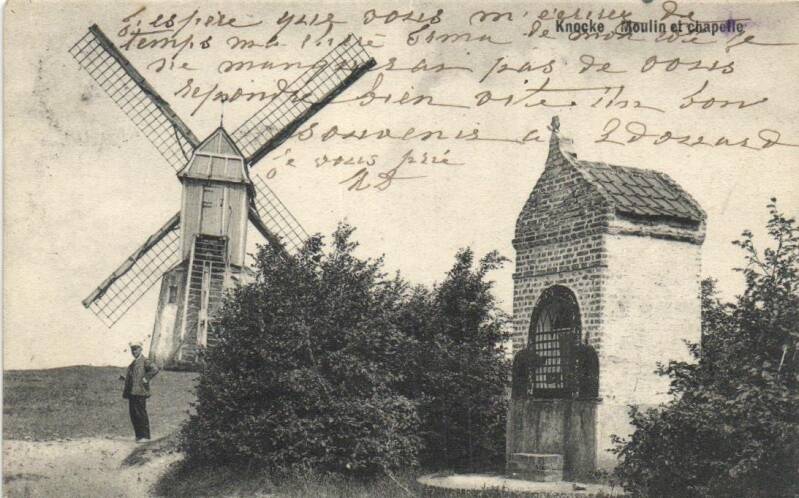 J'espère que vous m'écrirez de
Knocke Moulin et chapelle
temps ma de mon je
ne manquerai pas de vous
repondre bien vite Un bon
souvenir a Edouard
je vous prie
AD